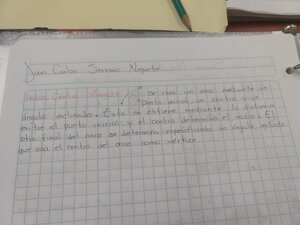 Juan Carlos Serrano Negrete
Inicio, Centro, Ángulo se crea un arco mediante un
punto inicial, un centro y un
ángulo inclinado. Esto se obtiene mediante la distancia
entre el punto inicial y el centro determina el radio. El
otro final del arco se determina especificando un ángulo
que usa el centro del arco como vertice